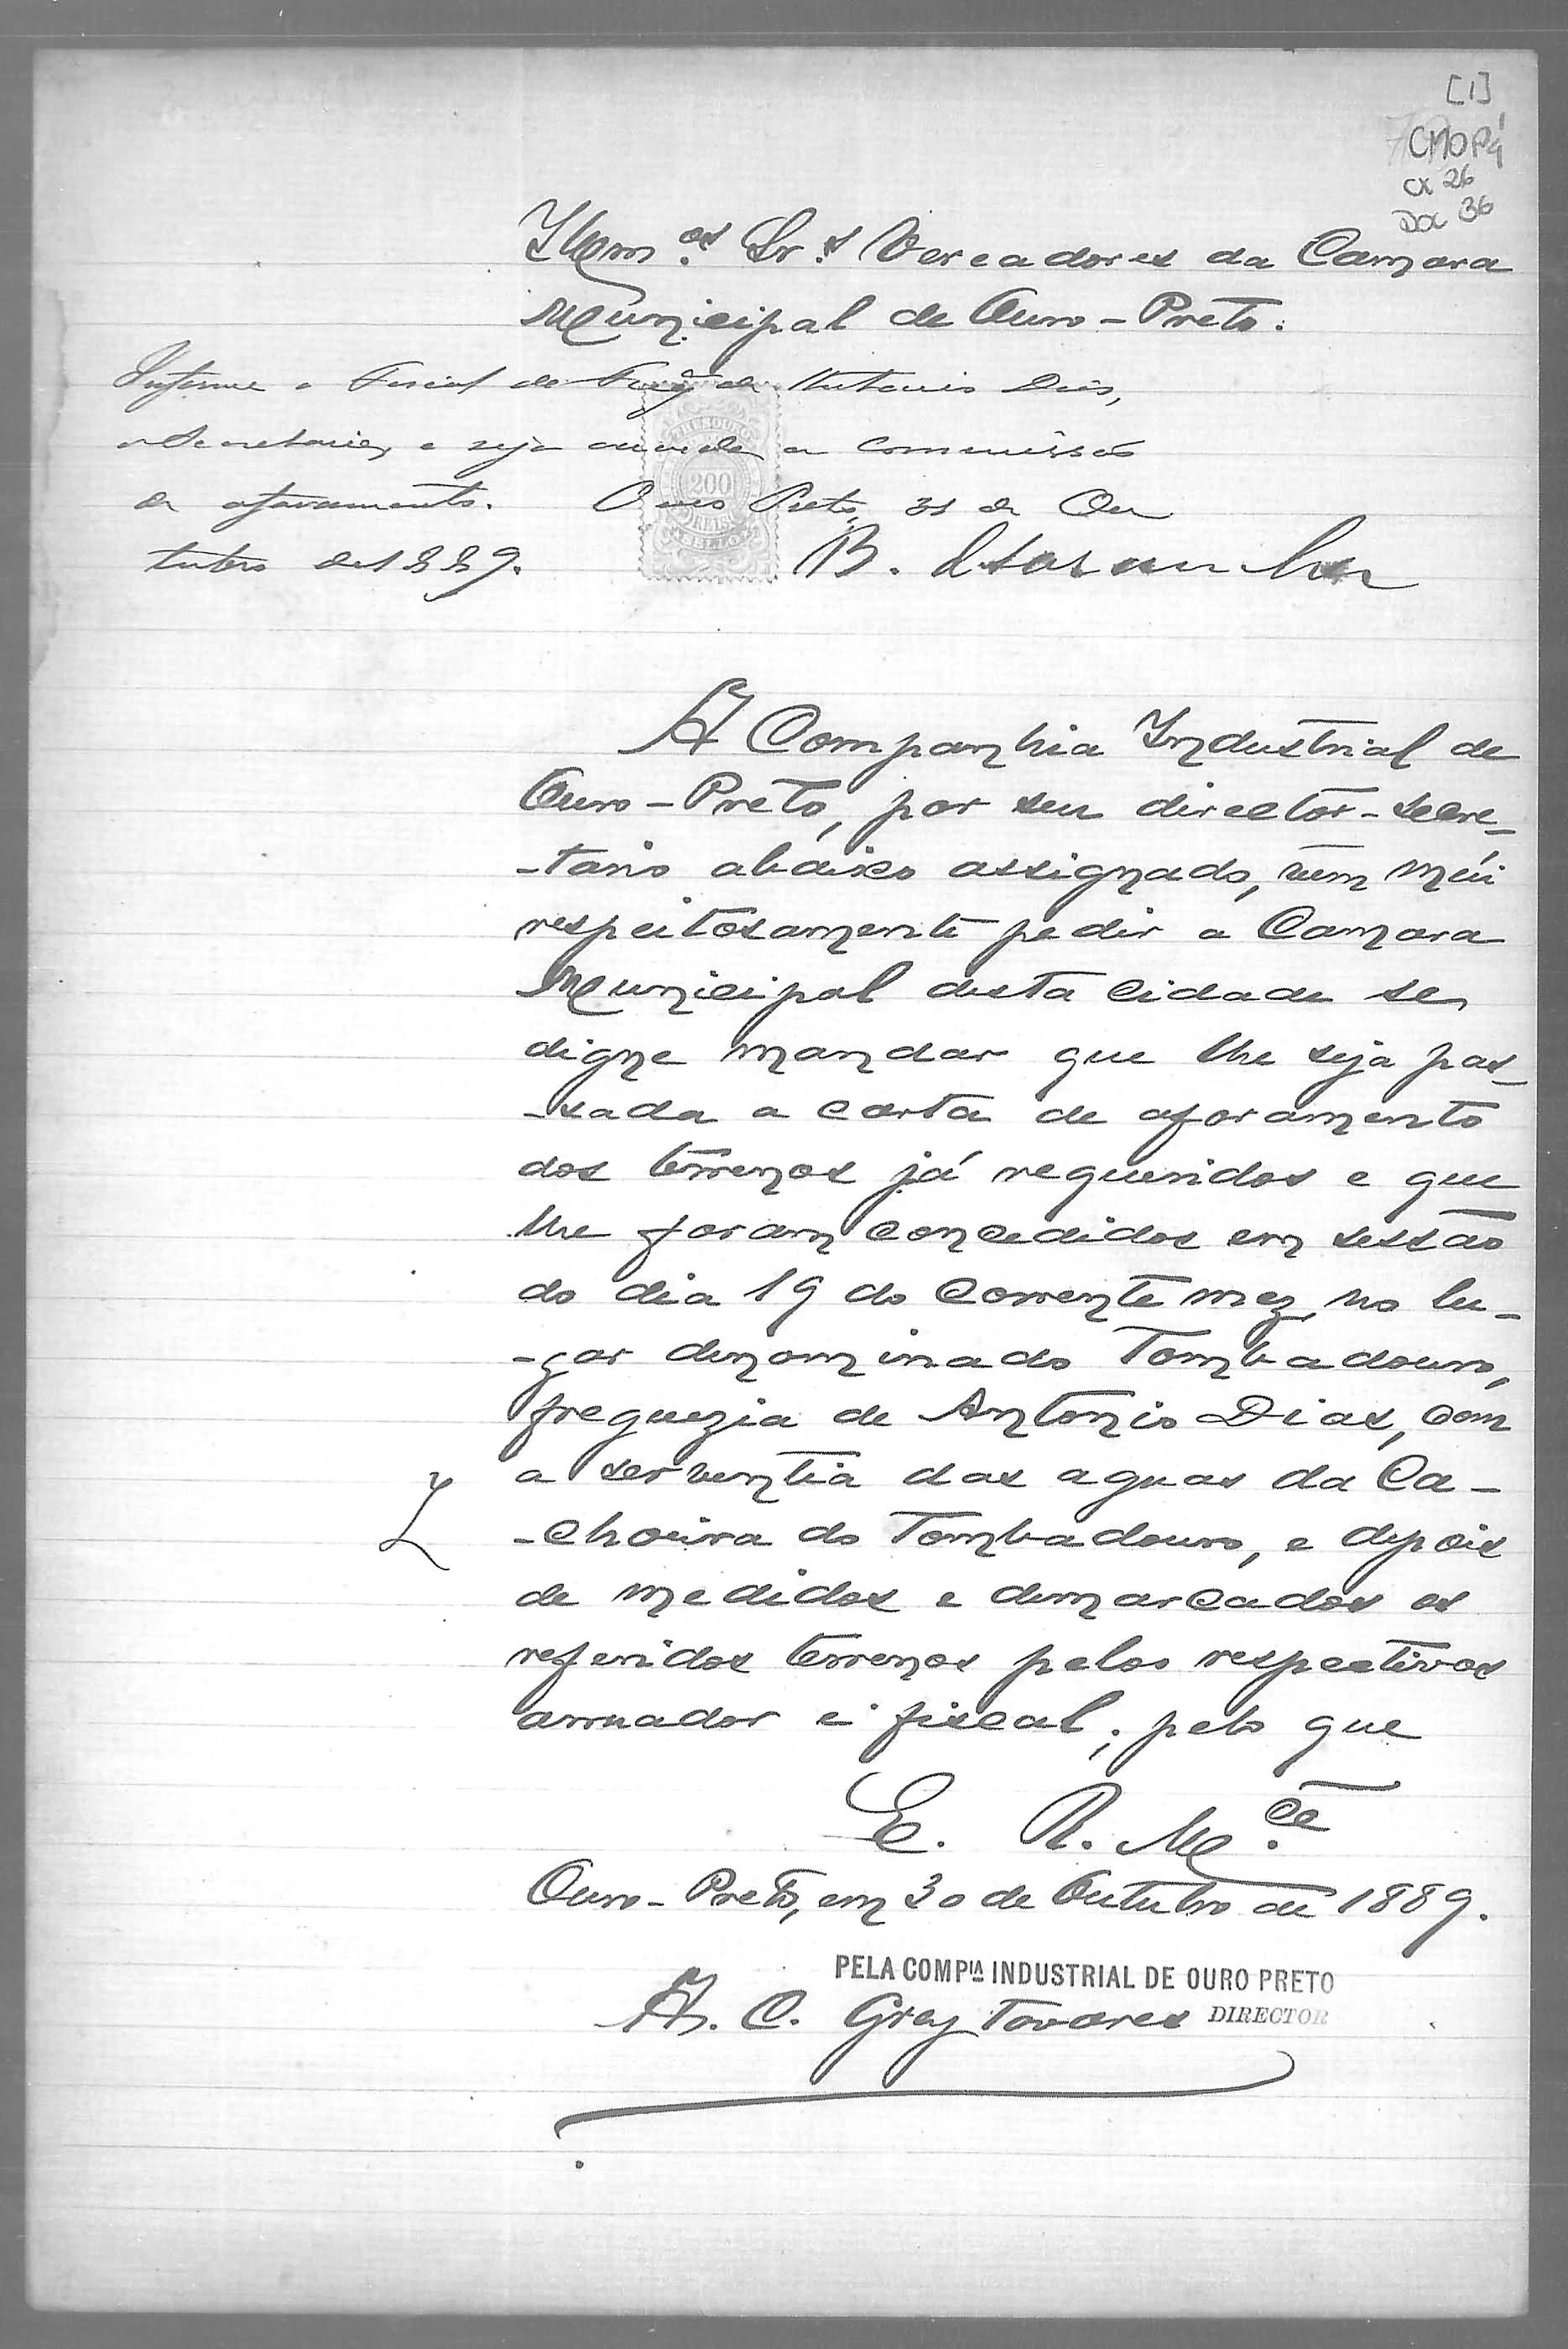 [1]
CMOP
CX 26
Doc 36
Illm.os Snr.s Vereadores da Camara
Municipal de Ouro-Preto.
Informe o Fiscal da Freg.a de Antonio Dias,
a Secretaria, e seja ouvida a commissão
de aforamento. Ouro Preto, 31 de Ou
tubro de 1889.
THESOURO
200
REIS
SELLO
A Companhia Industrial de
Ouro-Preto, por seu director-secre-
-tario abaixo assignado, vem mui
respeitosamente pedir a Camara
Municipal desta cidade se
digne mandar que lhe seja pas-
-sada a carta de aforamento
dos terrenos já requeridos e que
lhe foram concedidos em sessão
do dia 19 do corrente mez, no lu-
-gar denominado Tombadouro,
freguezia de Antonio Dias, com
a serventia das aguas da Ca-
-choeira do Tombadouro, e depois
de medidos e demarcados os
referidos terrenos pelos respectivos
arruador e fiscal; pelo que
E. R. M.ce
Ouro-Preto, em 30 de Outubro de 1889.
PELA COMPIA INDUSTRIAL DE OURO PRETO
A. C. Grey Tavares DIRECTOR